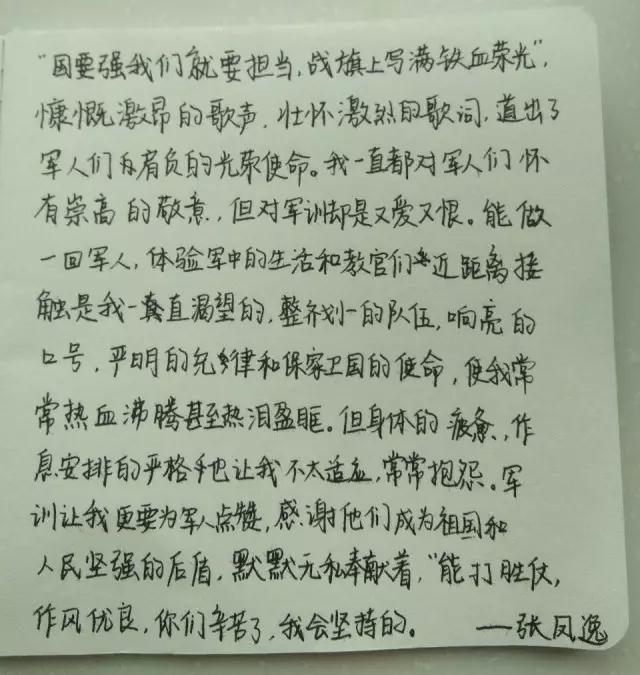 “国要强我们就要担当，战旗上写满铁血荣光”，
慷慨激昂的歌声，壮怀激烈的歌词，道出了
军人们肩负的光荣使命。我一直都对军人们怀
有崇高的敬意，但对军训却是又爱又恨。能做
一回军人，体验军中的生活和教官们近距离接
触是我一直渴望的，整齐划一的队伍，响亮的
口号，严明的纪律和保家卫国的使命，使我常
常热血沸腾甚至热泪盈眶。但身体的疲惫，作
息安排的严格也让我不太适应，常常抱怨。军
训让我更要为军人点赞，感谢他们成为祖国和
人民坚强的后盾，默默无私奉献着，“能打胜仗，
作风优良，你们辛苦了，我会坚持的。 ——张凤逸